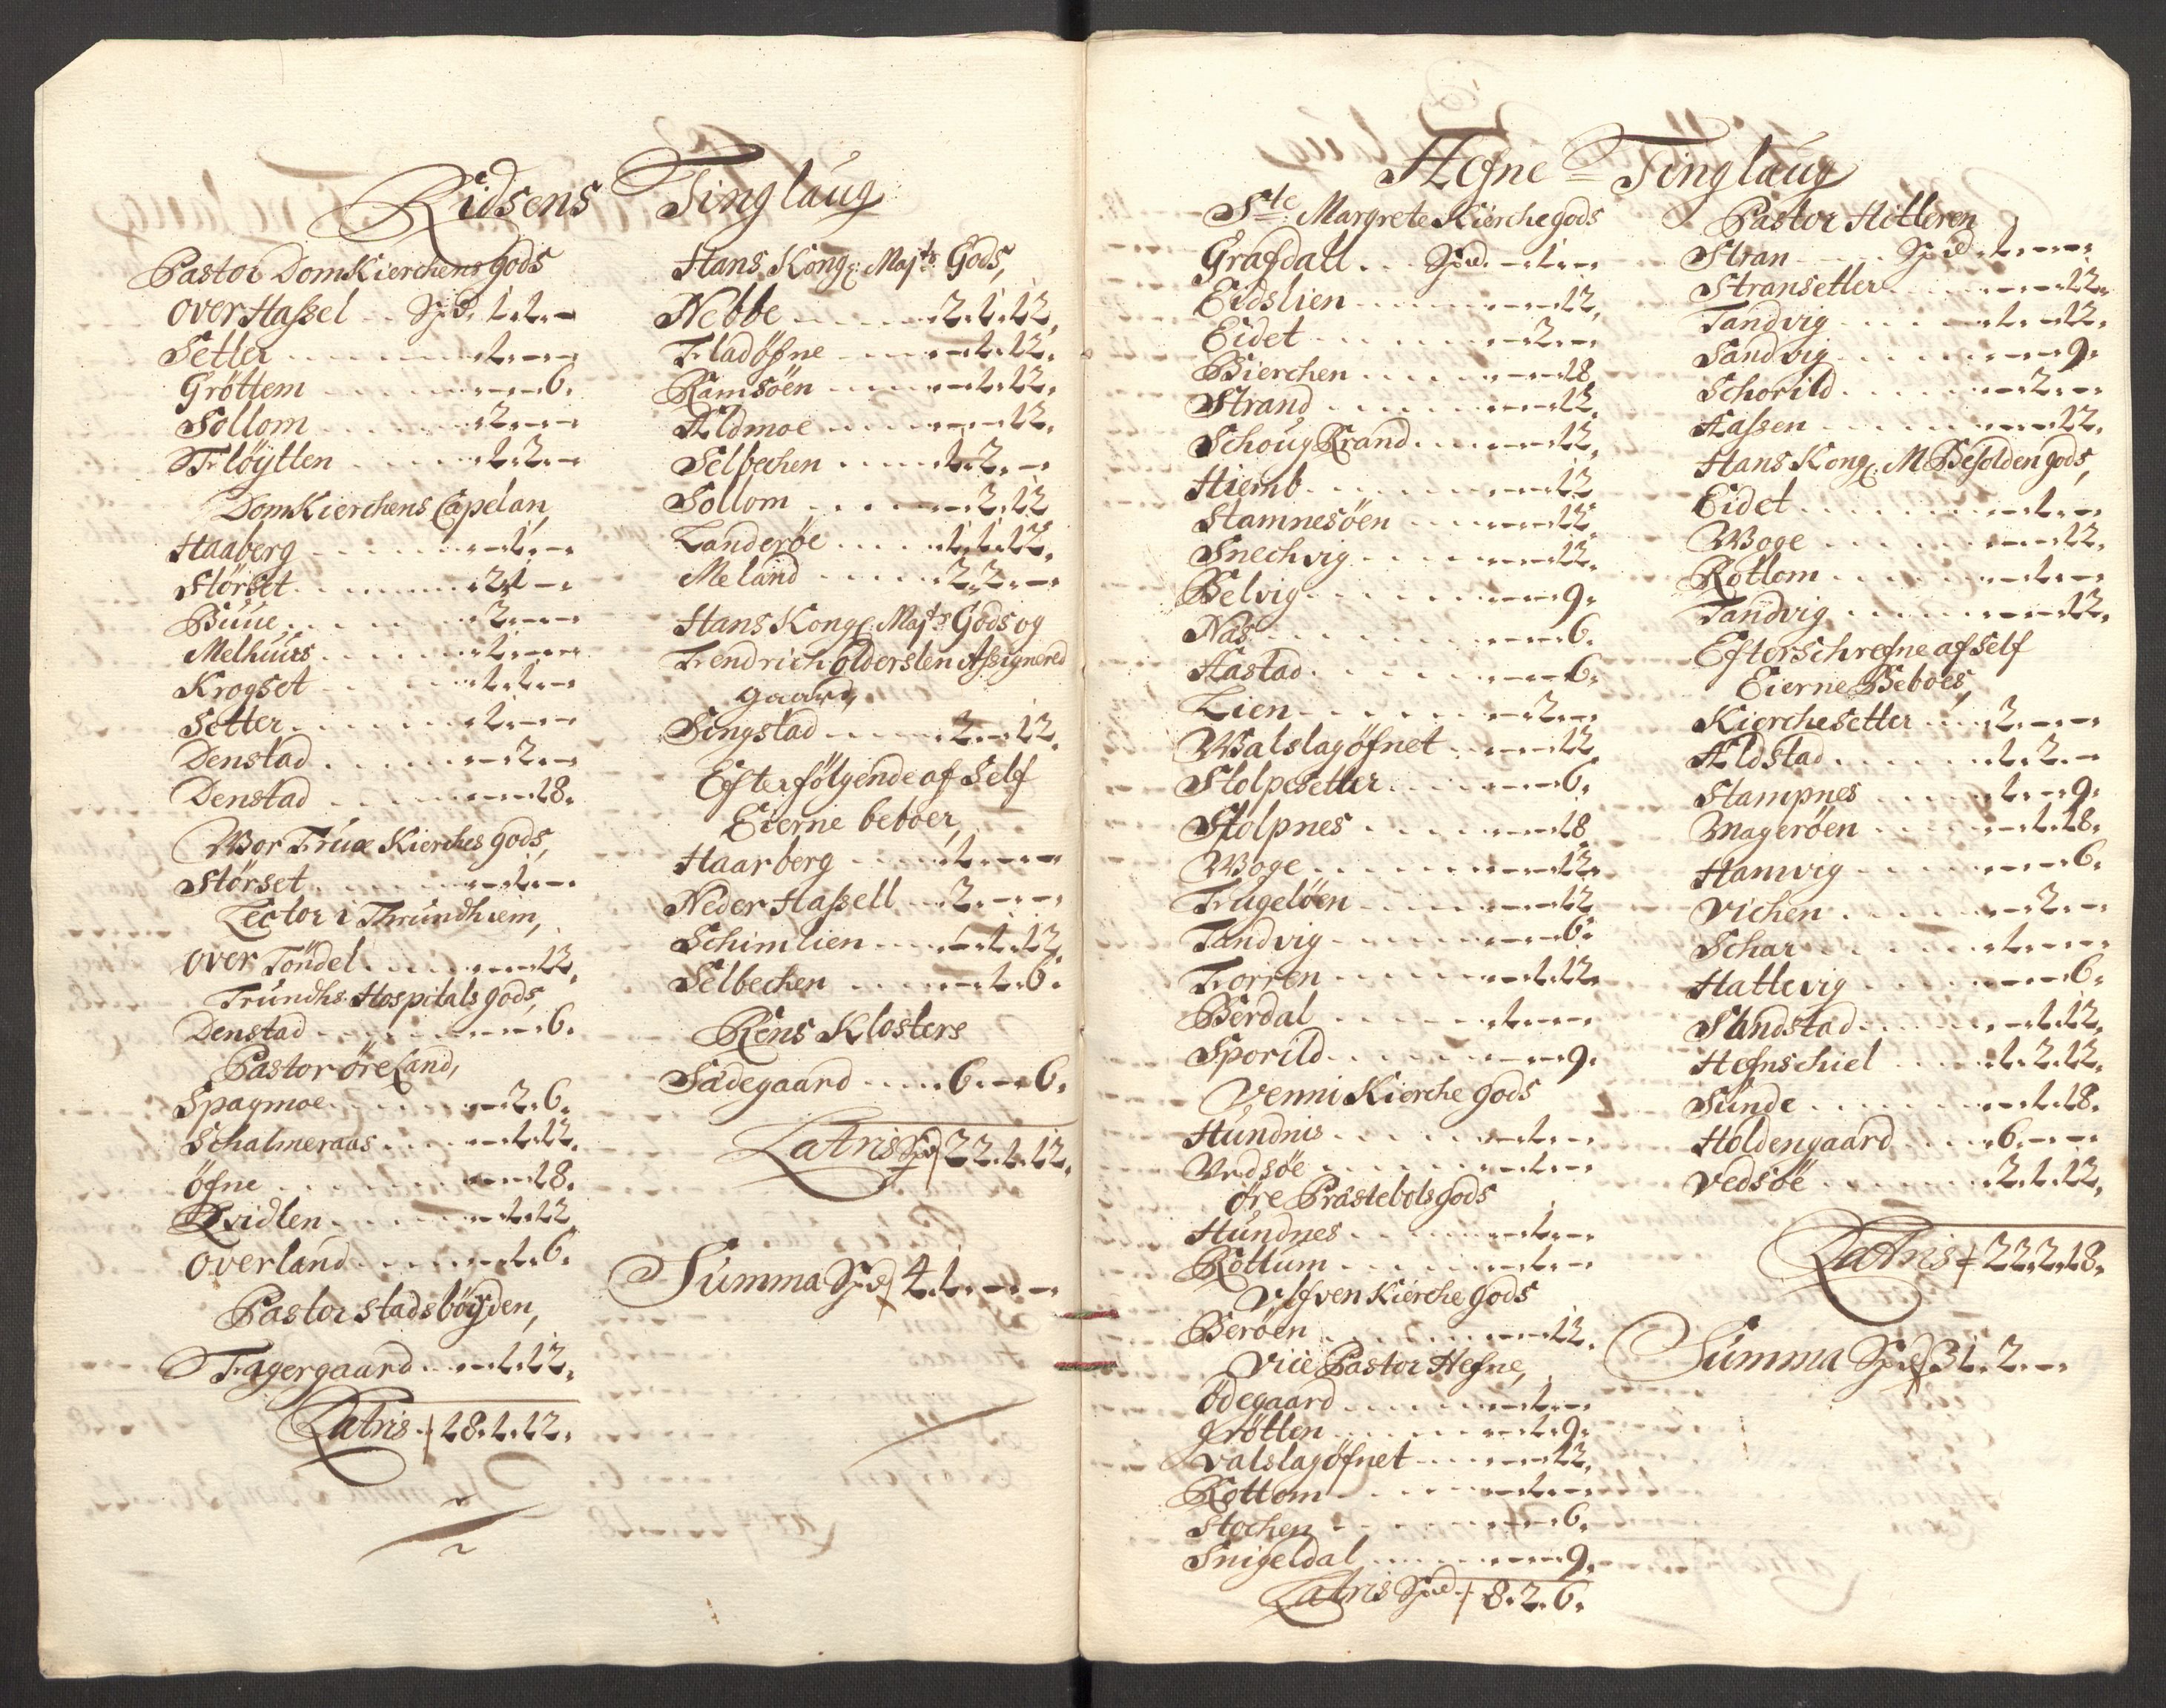 Ridsens Tinglaug
Pastor DomKierchens gods
Over Hassel Spd. 1.1.-
Setter 1.-.-
Grøttem -.-.6.
Sollom 2.-.-
Fløytten 1.2.-
DomKierchens Capelan,
Haaberg -.1.-
Störset 2.1.-
Buue 2.-.-
Melhuus 1.-.-
Krogset 1.1.-
Setter 1.-.-
Denstad -.2.-
Denstad -.-.18.
Wor Fruæ Kierches gods,
Störset -.1.-
Lector i Thrundhiem,
Over Töndel -.-.12.
Trundhs Hospitals gods,
Denstad -.-.6.
Pastor øre Land,
Spagmoe -.2.6.
Schalmeraas -.1.12.
öfne -.-.18.
Qvidlen -.1.12
Overland -.1.6.
Pastor Stadsböyden,
Fagergaard -.1.12.
Latris 18.1.12.
Hans Kongl. Majts Gods,
Nebbe 2.1.12.
Fladöfne -.1.12.
Ramsöen -.1.12.
Aldmoe -.-.12.
Selbechen 1.2.-
Sollom -.2.12
Landeröe 1.1.12.
Meland 2.2.-
Hans Kongl. Majts Gods og
Hendrich olderslen Assignered
gaard,
Singstad 2.-.12.
Efterfölgende af Self
Eierne beboer,
Haarberg 1.-.-
Neder Hassell 2.-.-
Schimlien -.1.12.
Selbechen -.1.6.
Rens Klosters
Sædegaard 6.-.6.
Latris Spd 22.1.12.
Summa Spd 41.-.-
Hefne = Tinglaug
Ste Margrete Kierche gods
Grafdall Spd. -.1.-
Eidslien -.-.12.
Eidet -.2.-
Bierchen -.-.18
Strand -.-.12.
Schoug Krand -.-.12.
Hiemb -.-.12
Hamnesöen -.-.12.
Snechvig -.-.12.
Belvig -.-.9.
Nas -.-.6.
Hastad -.-.6.
Lien -.2.-
Walslagöfnet -.-.12
Stolpesetter -.-.6.
Stolpnes -.-.18
Woge -.-.12.
Fugelöen -.-.12
Tandvig -.-.6.
Forren -.1.12.
Berdal 1.-.-
Sporild -.-.9.
Venni Kierche gods
Hundnis -.1.-
Vedsöe -.1.-
Øre Præstebols gods
Hundnes -.1.-
Rottum -.1.-
Ulfven Kierche gods
Beröen -.-.12.
Vice Pastor Hefne,
Ödegaard -.1.-
Grötten -.1.9.
Valslagöfnet -.-.12.
Rottom -.1.-
Stochen -.-.6.
Snigeldal -.-.9.
Latris Spd 8.2.6.
Pastor Hitteren
Stran Spd 1.-.-
Stransetter -.-.12.
Tandvig 1.-.12.
Sandvig -.-.9.
Schorild -.2.-
Hassen -.-.12.
Hans Kongl. M Besolden gods,
Eidet -.1.-
Woge -.-.12.
Rottom -.1.-
Tandvig -.-.12.
Efterschrefne af Self
Eierne Beboes,
Kierchesetter 2.-.-
Aldstad 1.2.-
Stampnes 1.-.9.
Magerøen -.1.18.
Hamvig -.-.6.
Vichen -.2.-
Schar 1.-.-
Hattevig -.-.6.
Sundstad -.1.12.
Hefnschiel 1.2.12.
Sunde -.1.18.
Holdengaard 6.-.-
Vedsöe 2.1.12.
Latris 22.2.18.
Summa Spd 31.2.-